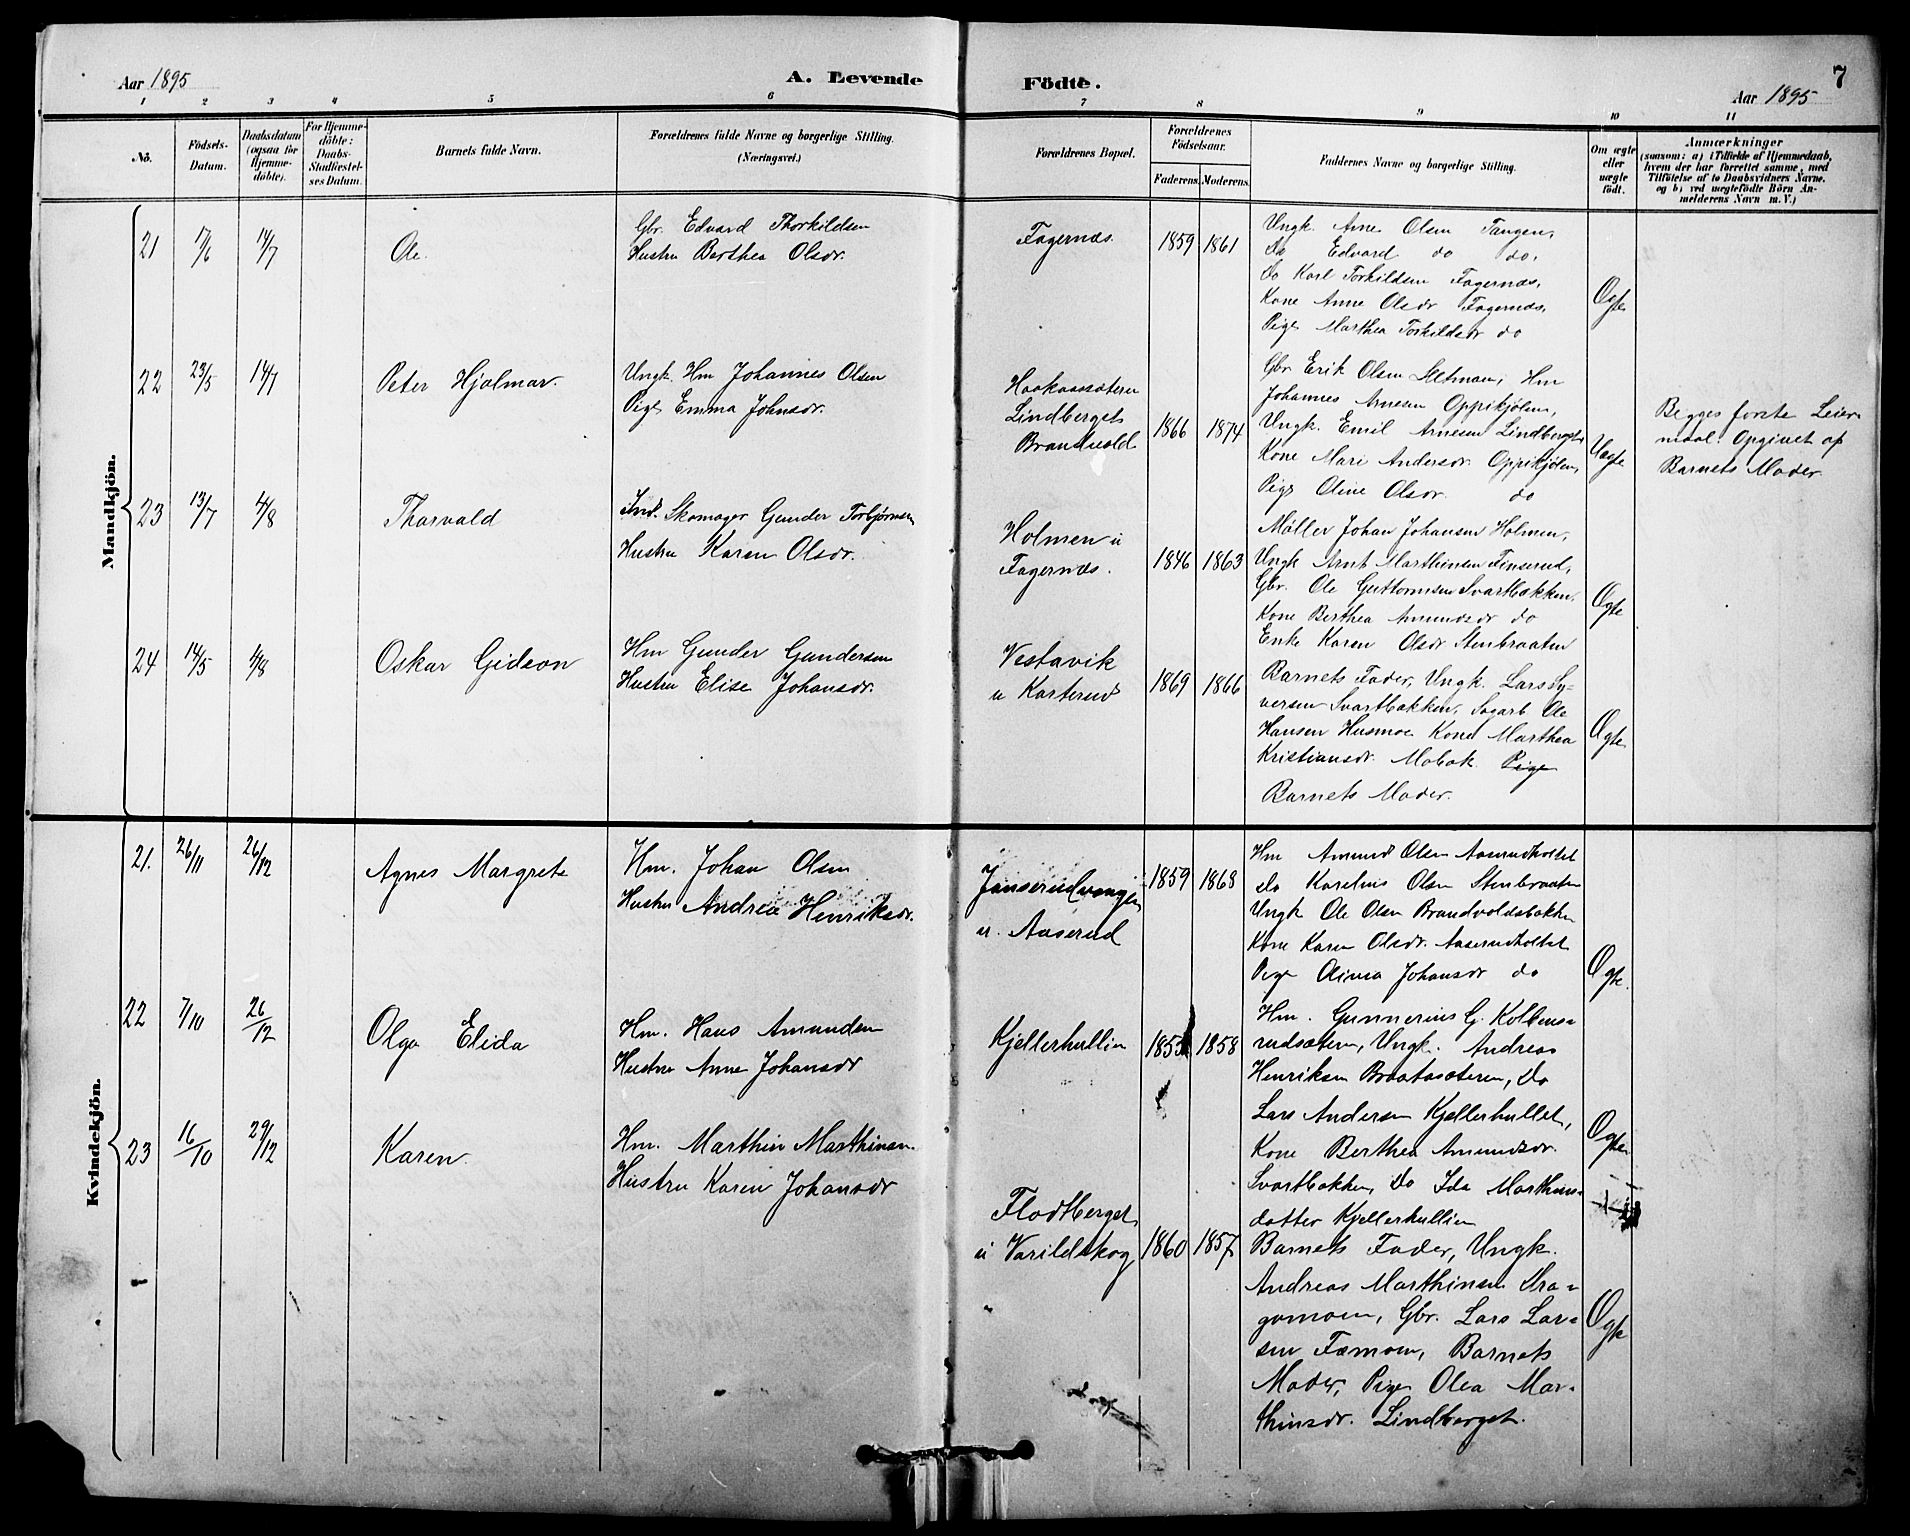 Aar 1895
A. Levende Födte.
7
Aar 1895
1 2 3 4 5 6 7 8 9 10 11
No.
Födsels-Datum.
Daabsdatum (ogsaa for Hjemme-döbte).
For Hjemme-döbte: Daabs-Stadfæstel-ses Datum.
Barnets fulde Navn.
Forældrenes fulde Navne og borgerlige Stilling.
(Næringsvei.)
Forældrenes Bopæl.
Forældrenes Födselsaar.
Faderens. Moderens.
Faddernes Navne og borgerlige Stilling.
Om ægte eller uægte födt.
Anmærkninger
(saasom: a) i Tilfælde af Hjemmedaab,
hvem der har forrettet samme, med
Tilföielse af to Daabsvidners Navne,
og b) ved uægtefödte Börn An-
melderens Navn m. V.)
Mandkjön.
21 17/6 14/7 Ole.
Gbr. Edvard Thorkildsen
Hustru Berthea Olsdr.
Fagernæs. 1859 1861
Ungk. Arne Olsen Tangen,
Do Edvard do do,
Do Karl Torkildsen Fagernæs,
Kone Anne Olsdr Fagernæs,
Pige Marthea Torkildsdr do
Ægte
22 23/5 14/7 Peter Hjalmar.
Ungk. Hm Johannes Olsen
Pige Emma Johnsdr.
Haakaassæteren
Lindberget
Brandvold
1866 1874
Gbr Erik Olsen Sletmoen, Hm
Johannes Arnesen Oppikjølen,
Ungk. Emil Arnesen Lindberget
Kone Mari Andersdr. Oppikjølen,
Pige Oline Olsdr. do
Uægte
Begges første Leier-
maal. Opgivet af
Barnets Moder.
23 13/7 4/8 Thorvald
Ind. Skomager Gunder Torbjørnsen
Hustru Karen Olsdr.
Holmen u
Fagernæs.
1846 1863
Møller Johan Johansen Holmen,
Ungk Arnt Marthinsen Finserud,
Gbr. Ole Guttormsen Svartbakken.
Kone Berthea Amundsdr do
Enke Karen Olsdr Stenbraaten
Ægte
24 14/5 4/8 Oskar Gideon
Hm Gunder Gundersen
Hustru Elise Johansdr.
Vestavik
u Karterud
1869 1866
Barnets Fader, Ungk. Lars Sy-
versen Svartbakken, Sagarb Ole
Hansen Husmoe Kone Marthea
Kristiansdr. Mobæk. Pige
Barnets Moder.
Ægte
Kvindekjön.
21. 26/11 26/12 Agnes Margrete
Hm. Johan Olsen
Hustru Andrea Henriksdr.
Janserudvangen
u. Aaserud
1859 1868
Hm Amund Olsen Aaserudholtet
do Karelius Olsen Stenbraaten
Ungk Ole Olsen Brandvoldsbakken
Kone Karen Olsdr. Aaserudholtet
Pige Olivia Johansdr do
Ægte.
22 7/10 26/12 Olga Elida
Hm. Hans Amundsen
Hustru Anne Johansdr
Kjellerhullin 1853 1858
Hm. Gunnerius G. Kolbens-
rudsæteren, Ungk. Andreas
Henriksen Braatasæteren, Do
Lars Andersen Kjellerhullet,
Kone Berthea Amundsdr.
Svartbakken, Do Ida Marthins-
datter Kjellerhullin
Ægte
23 16/10 29/12 Karen.
Hm. Marthin Marthinsen.
Hustru Karen Johansdr
Flodberget
u Varildskog
1860 1857
Barnets Fader, Ungk.
Andreas Marthinsen Dra-
gomoen, Gbr. Lars Lar-
sen Fæmoen, Barnets
Moder, Pige Olea Mar-
thinsdr. Lindberget.
Ægte